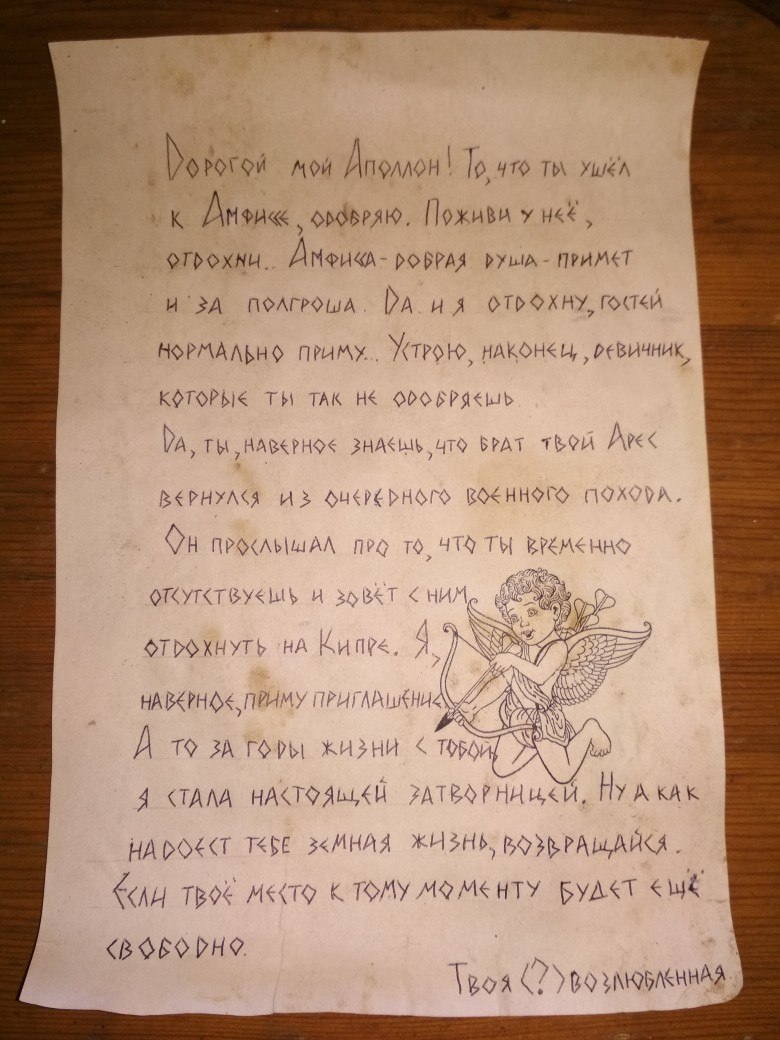 Дорогой мой Аполлон! То, что ты ушёл
к Амфиссе, одобряю. Поживи у неё,
отдохни.. Амфисса - добрая душа - примет
и за полгроша. Да и я отдохну, гостей
нормально приму... Устрою, наконец, девичник,
которые ты так не одобряешь.
Да, ты, наверное знаешь, что брат твой Арес
вернулся из очередного военного похода.
Он прослышал про то, что ты временно
отсутствуешь и зовёт с ним
отдохнуть на Кипре. Я,
наверное, приму приглашение.
А то за годы жизни с тобой,
я стала настоящей затворницей. Ну а как
надоест тебе земная жизнь, возвращайся.
Если твоё место к тому моменту будет ещё
свободно.
Твоя (?) возлюбленная.